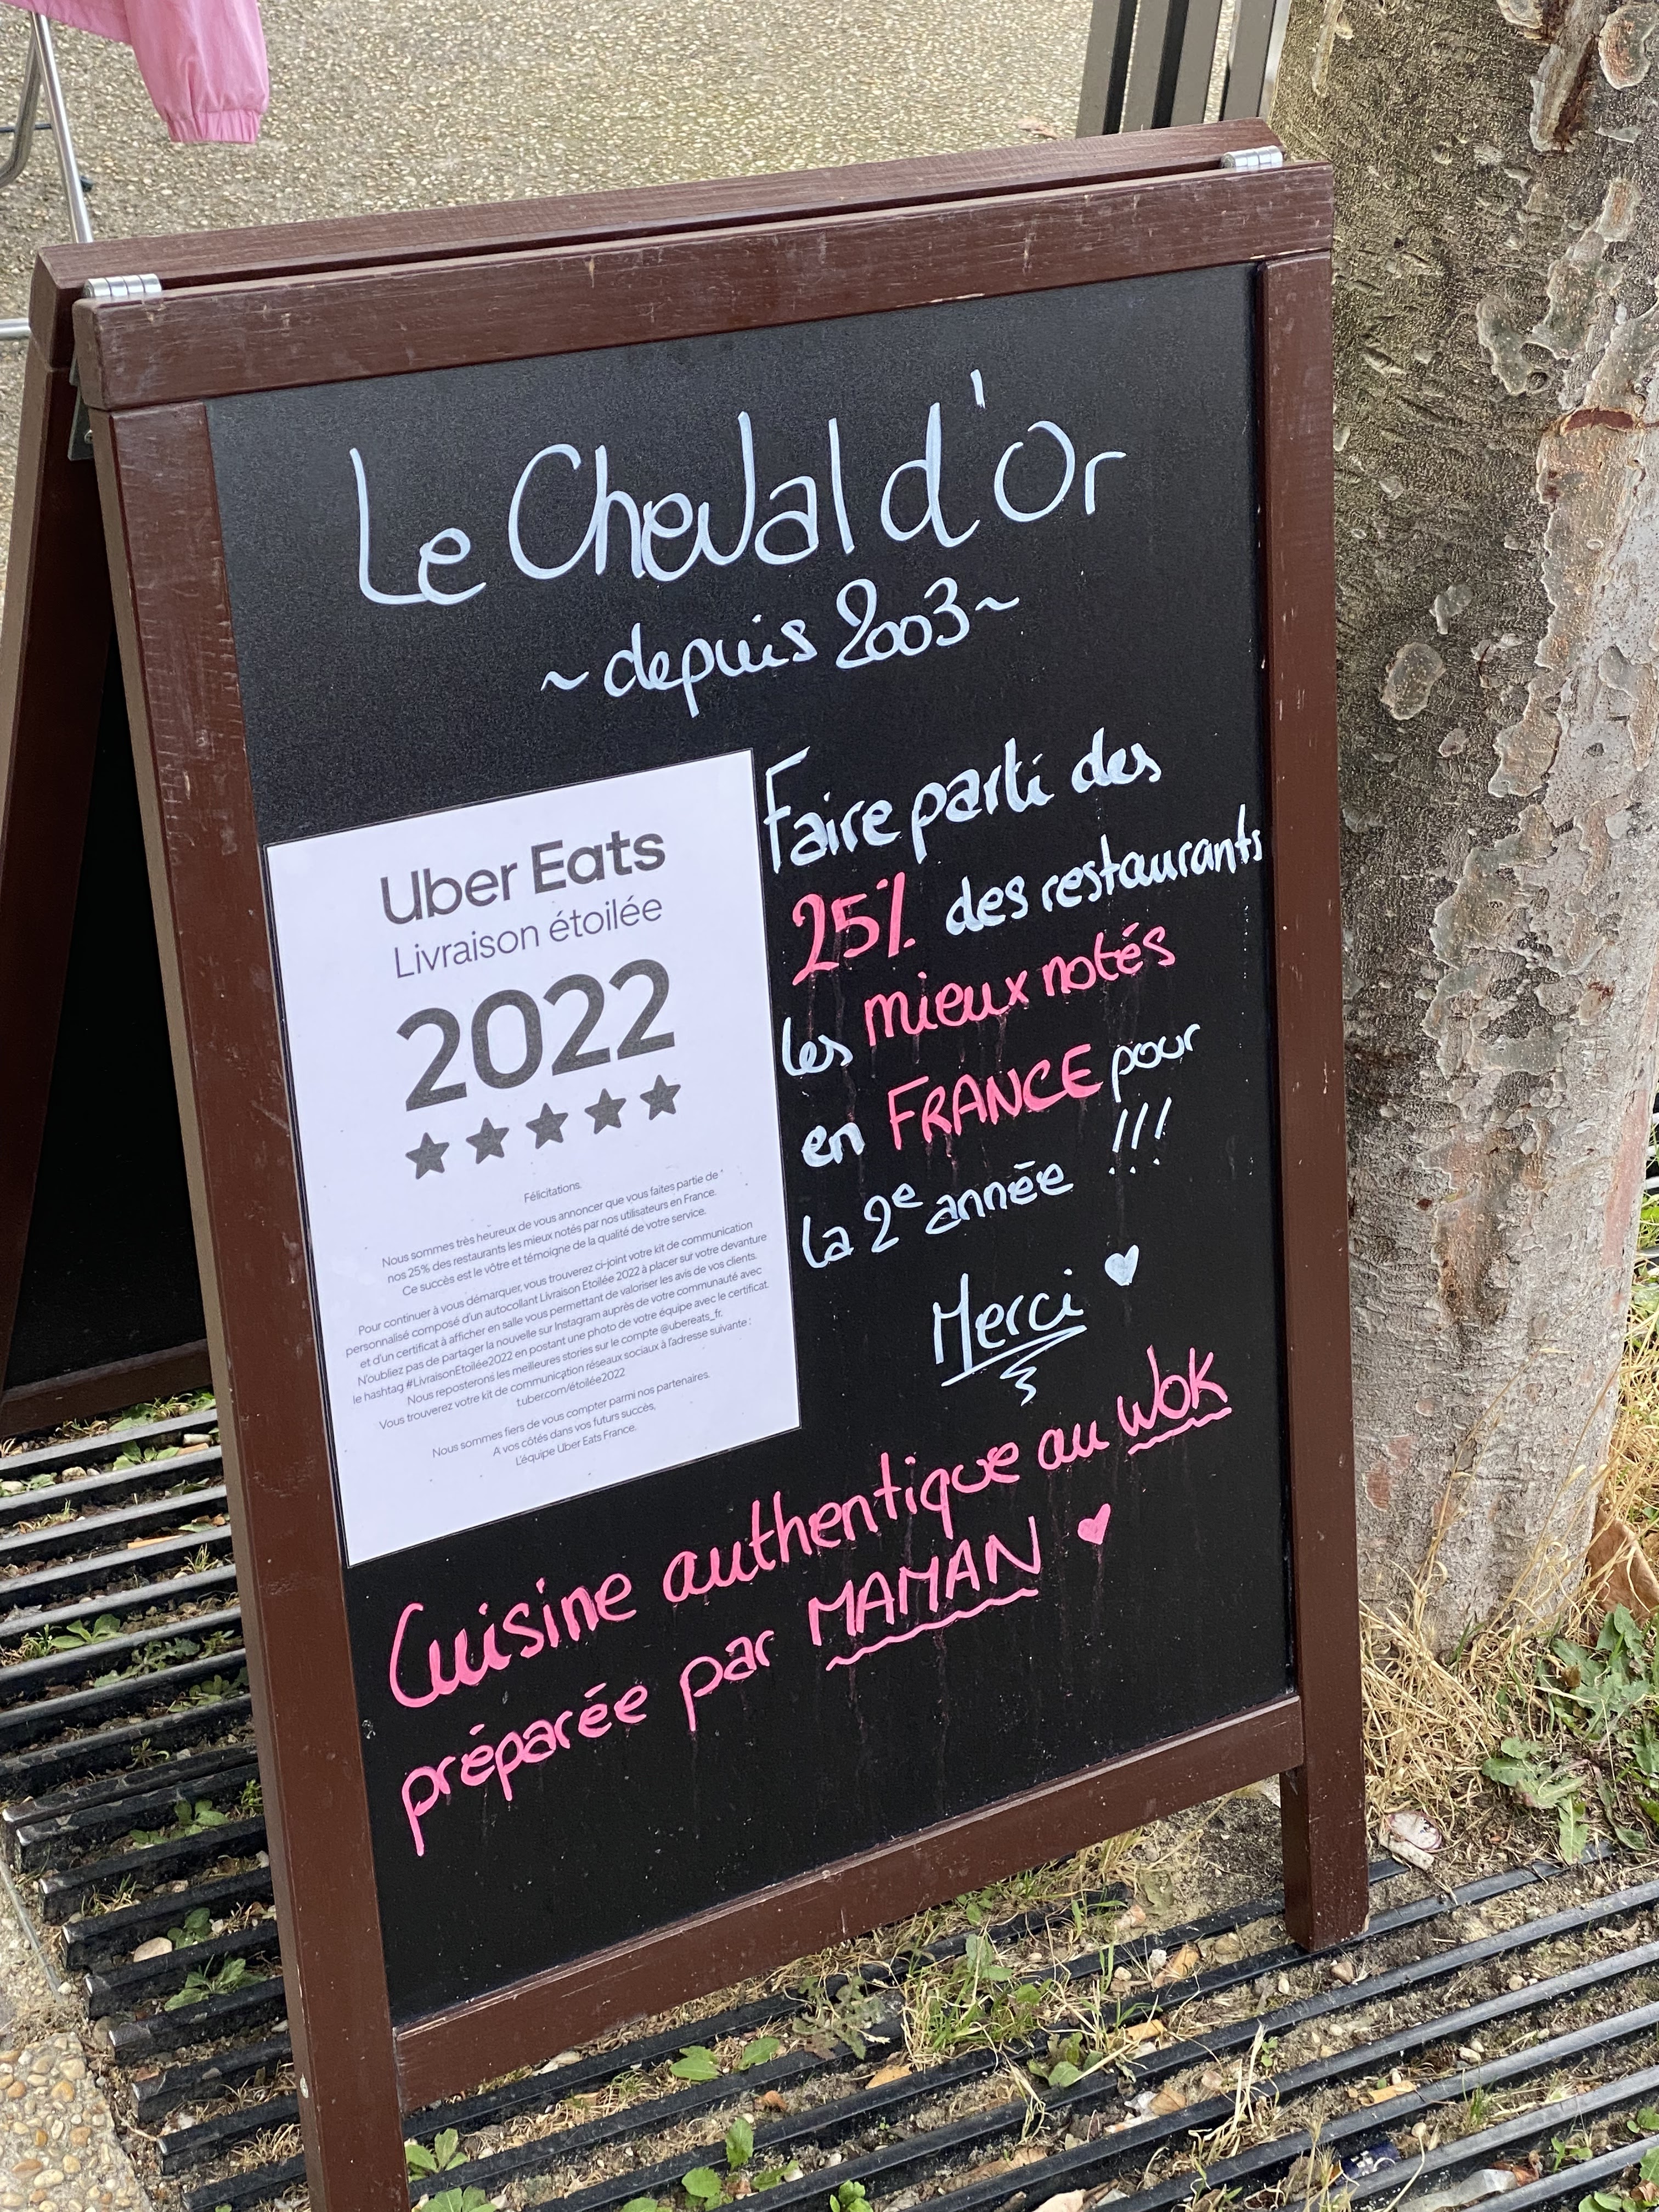 Le Cheval d'Or
~depuis 2003~
Uber Eats
Livraison étoilée
2022
Félicitations,
Nous sommes très heureux de vous annoncer que vous faites partie de
nos 25% des restaurants les mieux notés par nos utilisateurs en France.
Ce succès est le vôtre et témoigne de la qualité de votre service.
Pour continuer à vous démarquer, vous trouverez ci-joint votre kit de communication
personnalisé composé d'un autocollant Livraison Etoilée 2022 à placer sur votre devanture
et d'un certificat à afficher en salle vous permettant de valoriser les avis de vos clients.
N'oubliez pas de partager la nouvelle sur Instagram auprès de votre communauté avec
le hashtag #LivraisonEtoilée2022 en postant une photo de votre équipe avec le certificat.
Nous reposterons les meilleures stories sur le compte @ubereats_fr.
Vous trouverez votre kit de communication réseaux sociaux à l'adresse suivante :
t.uber.com/étoilée2022
Nous sommes fiers de vous compter parmi nos partenaires.
A vos côtés dans vos futurs succès,
L'équipe Uber Eats France.
Faire parti des
25% des restaurants
les mieux notés
en FRANCE pour
la 2e année !!!
Merci ♥
Cuisine authentique au WOK
préparée par MAMAN ♥